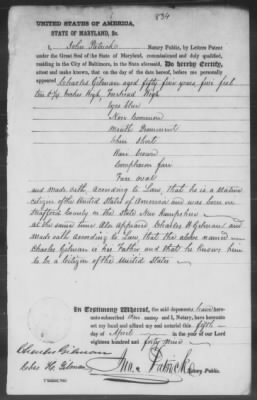 834
UNITED STATES OF AMERICA,
STATE OF MARYLAND, Sc.
I, John Patrick Notary Public, by Letters Patent
under the Great Seal of the State of Maryland, commissioned and duly qualified,
residing in the City of Baltimore, in the State aforesaid, Do hereby Certify,
attest and make known, that on the day of the date hereof, before me personally
appeared Charles Gilman aged fifty four years, five feet
ten Inches high, Forehead High
Eyes blue
Nose Common
Mouth Prominent
Chin Short
Hair brown
Complexion fair
Face oval
and made oath, according to Law, that he is a native
citizen of the United States of America and was born in
Strafford County in the State New Hampshire
at the same time Also appeared Charles H Gilman and
made oath according to Law that the above named
Charles Gilman is his Father and that he knows him
to be a Citizen of the United States
In Testimony Whereof, the said deponents have here-
unto subscribed their names and I, Notary, have hereunto
set my hand and affixed my seal notarial this fifth
day of April in the year of our Lord
eighteen hundred and forty nine
Charles Gilman
Chas H. Gilman
Jno. Patrick
Notary Public.